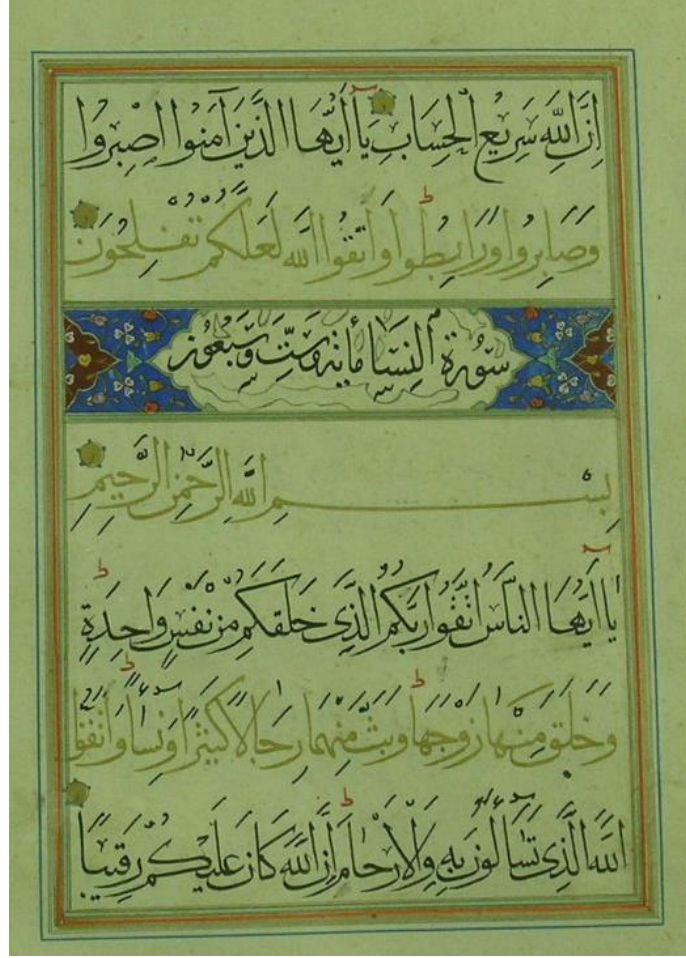 اِنَّ اللّٰهَ سَرِيعُ الْحِسَابِ يَآ اَيُّهَا الَّذِينَ آمَنُوا اصْبِرُوا
وَصَابِرُوا وَرَابِطُوا وَاتَّقُوا اللّٰهَ لَعَلَّكُمْ تُفْلِحُونَ
سُورَةُ النِّسَآءِ مِأَيَةٌ وَسِتَّ وَسَبْعُونَ
بِسْمِ اللّٰهِ الرَّحْمٰنِ الرَّحِيمِ
يَآ اَيُّهَا النَّاسُ اتَّقُوا رَبَّكُمُ الَّذِى خَلَقَكُمْ مِنْ نَفْسٍ وَاحِدَةٍ
وَخَلَقَ مِنْهَا زَوْجَهَا وَبَثَّ مِنْهُمَا رِجَالًا كَثِيرًا وَنِسَآءً وَاتَّقُوا
اللّٰهَ الَّذِى تَسَآءَلُونَ بِهِ وَالْاَرْحَامَ اِنَّ اللّٰهَ كَانَ عَلَيْكُمْ رَقِيبًا